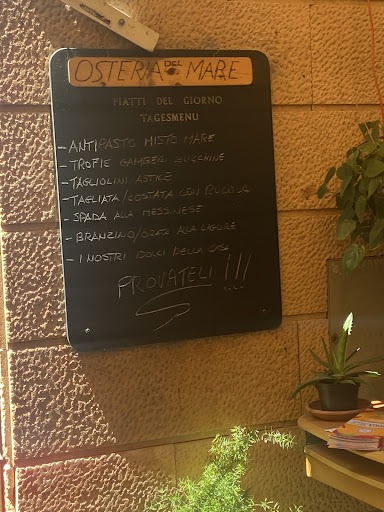 OSTERIA DEL MARE
PIATTI DEL GIORNO
TAGESMENU
- ANTIPASTO MISTO MARE
- TROFIE GAMBERI ZUCCHINE
- TAGLIOLINI ASTICE
- TAGLIATA/COSTATA CON RUCOLA
- SPADA ALLA MESSINESE
- BRANZINO/ORATA ALLA LIGURE
- I NOSTRI DOLCI DELLA CASA
PROVATELI!!!